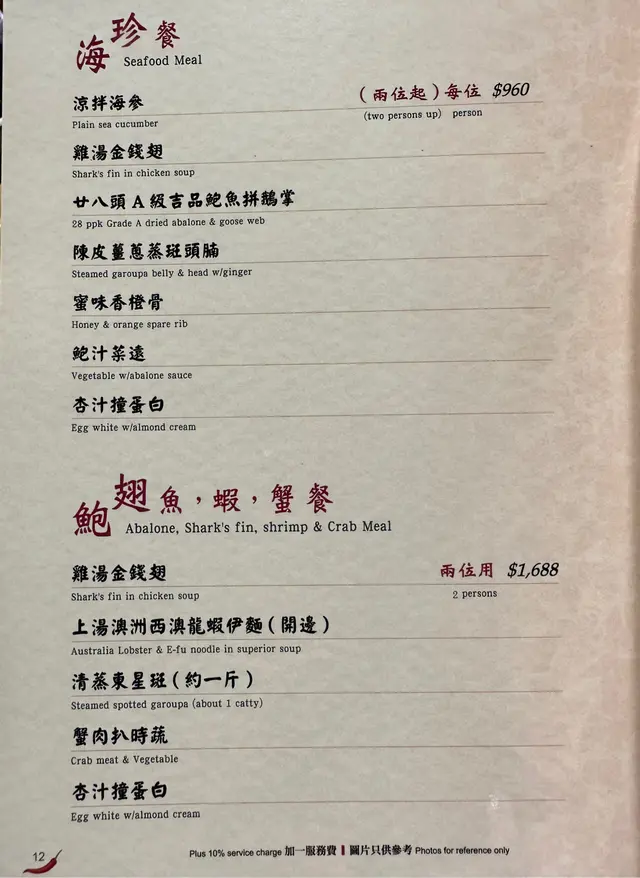 海珍餐
Seafood Meal
涼拌海參 (兩位起)每位 $960
Plain sea cucumber (two persons up) person
雞湯金錢翅
Shark's fin in chicken soup
廿八頭 A 級吉品鮑魚拼鵝掌
28 ppk Grade A dried abalone & goose web
陳皮薑蔥蒸斑頭腩
Steamed garoupa belly & head w/ginger
蜜味香橙骨
Honey & orange spare rib
鮑汁菜遠
Vegetable w/abalone sauce
杏汁撞蛋白
Egg white w/almond cream
鮑翅魚,蝦,蟹餐
Abalone, Shark's fin, shrimp & Crab Meal
雞湯金錢翅 兩位用 $1,688
Shark's fin in chicken soup 2 persons
上湯澳洲西澳龍蝦伊麵(開邊)
Australia Lobster & E-fu noodle in superior soup
清蒸東星斑(約一斤)
Steamed spotted garoupa (about 1 catty)
蟹肉扒時蔬
Crab meat & Vegetable
杏汁撞蛋白
Egg white w/almond cream
12 Plus 10% service charge 加一服務費 | 圖片只供參考 Photos for reference only